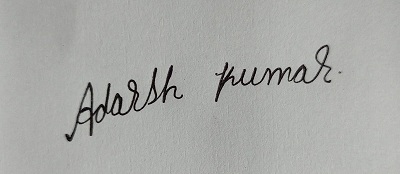 Adarsh kumar.